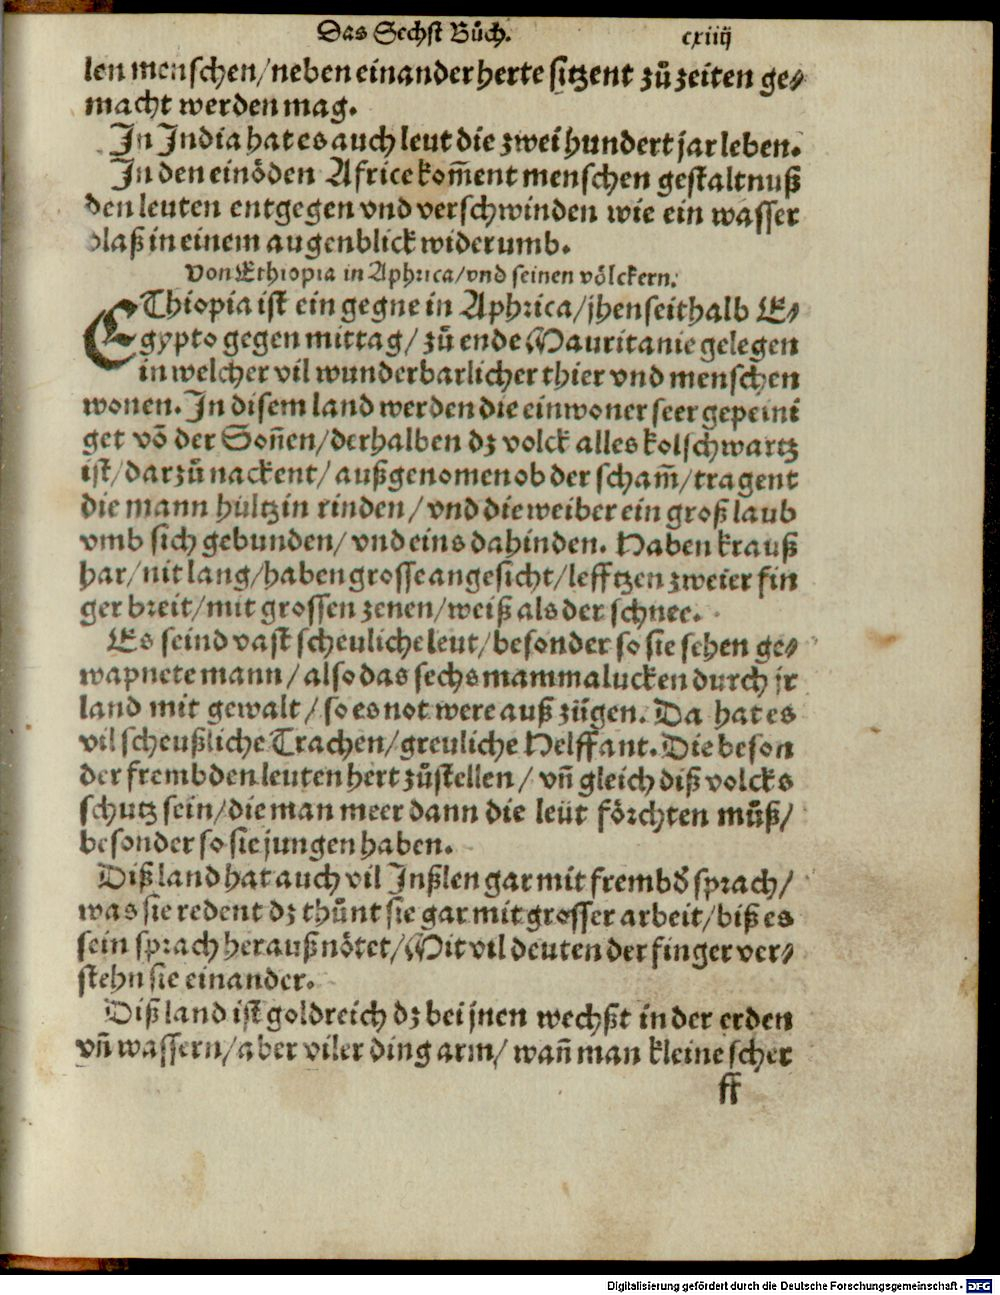 Das Sechst Bůch. cxiiij
len menschen/neben einander herte sitzent zů zeiten ge⸗
macht werden mag.
In India hat es auch leut die zwei hundert jar leben.
In den einöden Africe kom̃ent menschen gestaltnuß
den leuten entgegen vnd verschwinden wie ein wasser
blaß in einem augenblick widerumb.
Von Ethiopia in Aphrica/vnd seinen völckern.
EThiopia ist ein gegne in Aphrica/jhenseithalb E⸗
gypto gegen mittag/ zů ende Mauritanie gelegen
in welcher vil wunderbarlicher thier vnd menschen
wonen. In disem land werden die einwoner seer gepeini
get võ der Soñen/derhalben dz volck alles kolschwartz
ist/darzů nackent/ außgenomen ob der scham̃/tragent
die mann hültzin rinden/ vnd die weiber ein groß laub
vmb sich gebunden/ vnd eins dahinden. Haben krauß
har/nit lang/haben grosse angesicht/lefftzen zweier fin
ger breit/mit grossen zenen/weiß als der schnee.
Es seind vast scheuliche leut/besonder so sie sehen ge⸗
wapnete mann/ also das sechs mammalucken durch jr
land mit gewalt/ so es not were auß zügen. Da hat es
vil scheußliche Trachen/greuliche Helffant. Die beson
der frembden leuten hert zůstellen/ vñ gleich diß volcks
schutz sein/die man meer dann die leüt förchten můß/
besonder so sie jungen haben.
Diß land hat auch vil Inßlen gar mit frembď sprach/
was sie redent dz thůnt sie gar mit grosser arbeit/biß es
sein sprach herauß nötet/Mit vil deuten der finger ver⸗
stehn sie einander.
Diß land ist goldreich dz bei jnen wechßt in der erden
vñ wassern/aber viler ding arm/ wañ man kleine scher
ff
Digitalisierung gefördert durch die Deutsche Forschungsgemeinschaft - DFG